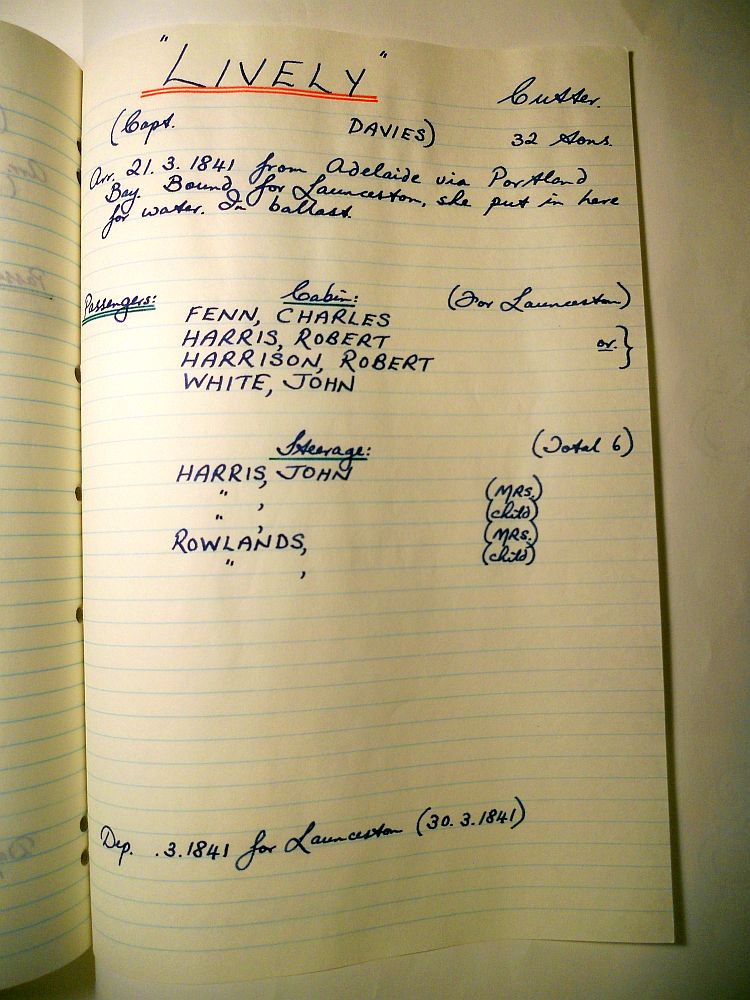 "LIVELY"
Cutter.
(Capt. DAVIES) 32 tons.
Arr. 21.3.1841 from Adelaide via Portland
Bay. Bound for Launceston, she put in here
for water. In ballast.
Passengers: Cabin: (For Launceston)
FENN, CHARLES
HARRIS, ROBERT or. }
HARRISON, ROBERT
WHITE, JOHN
Steerage: (Total 6)
HARRIS, JOHN
" , (MRS.)
" , (child)
ROWLANDS, (MRS.)
" , (child)
Dep. .3.1841 for Launceston (30.3.1841)